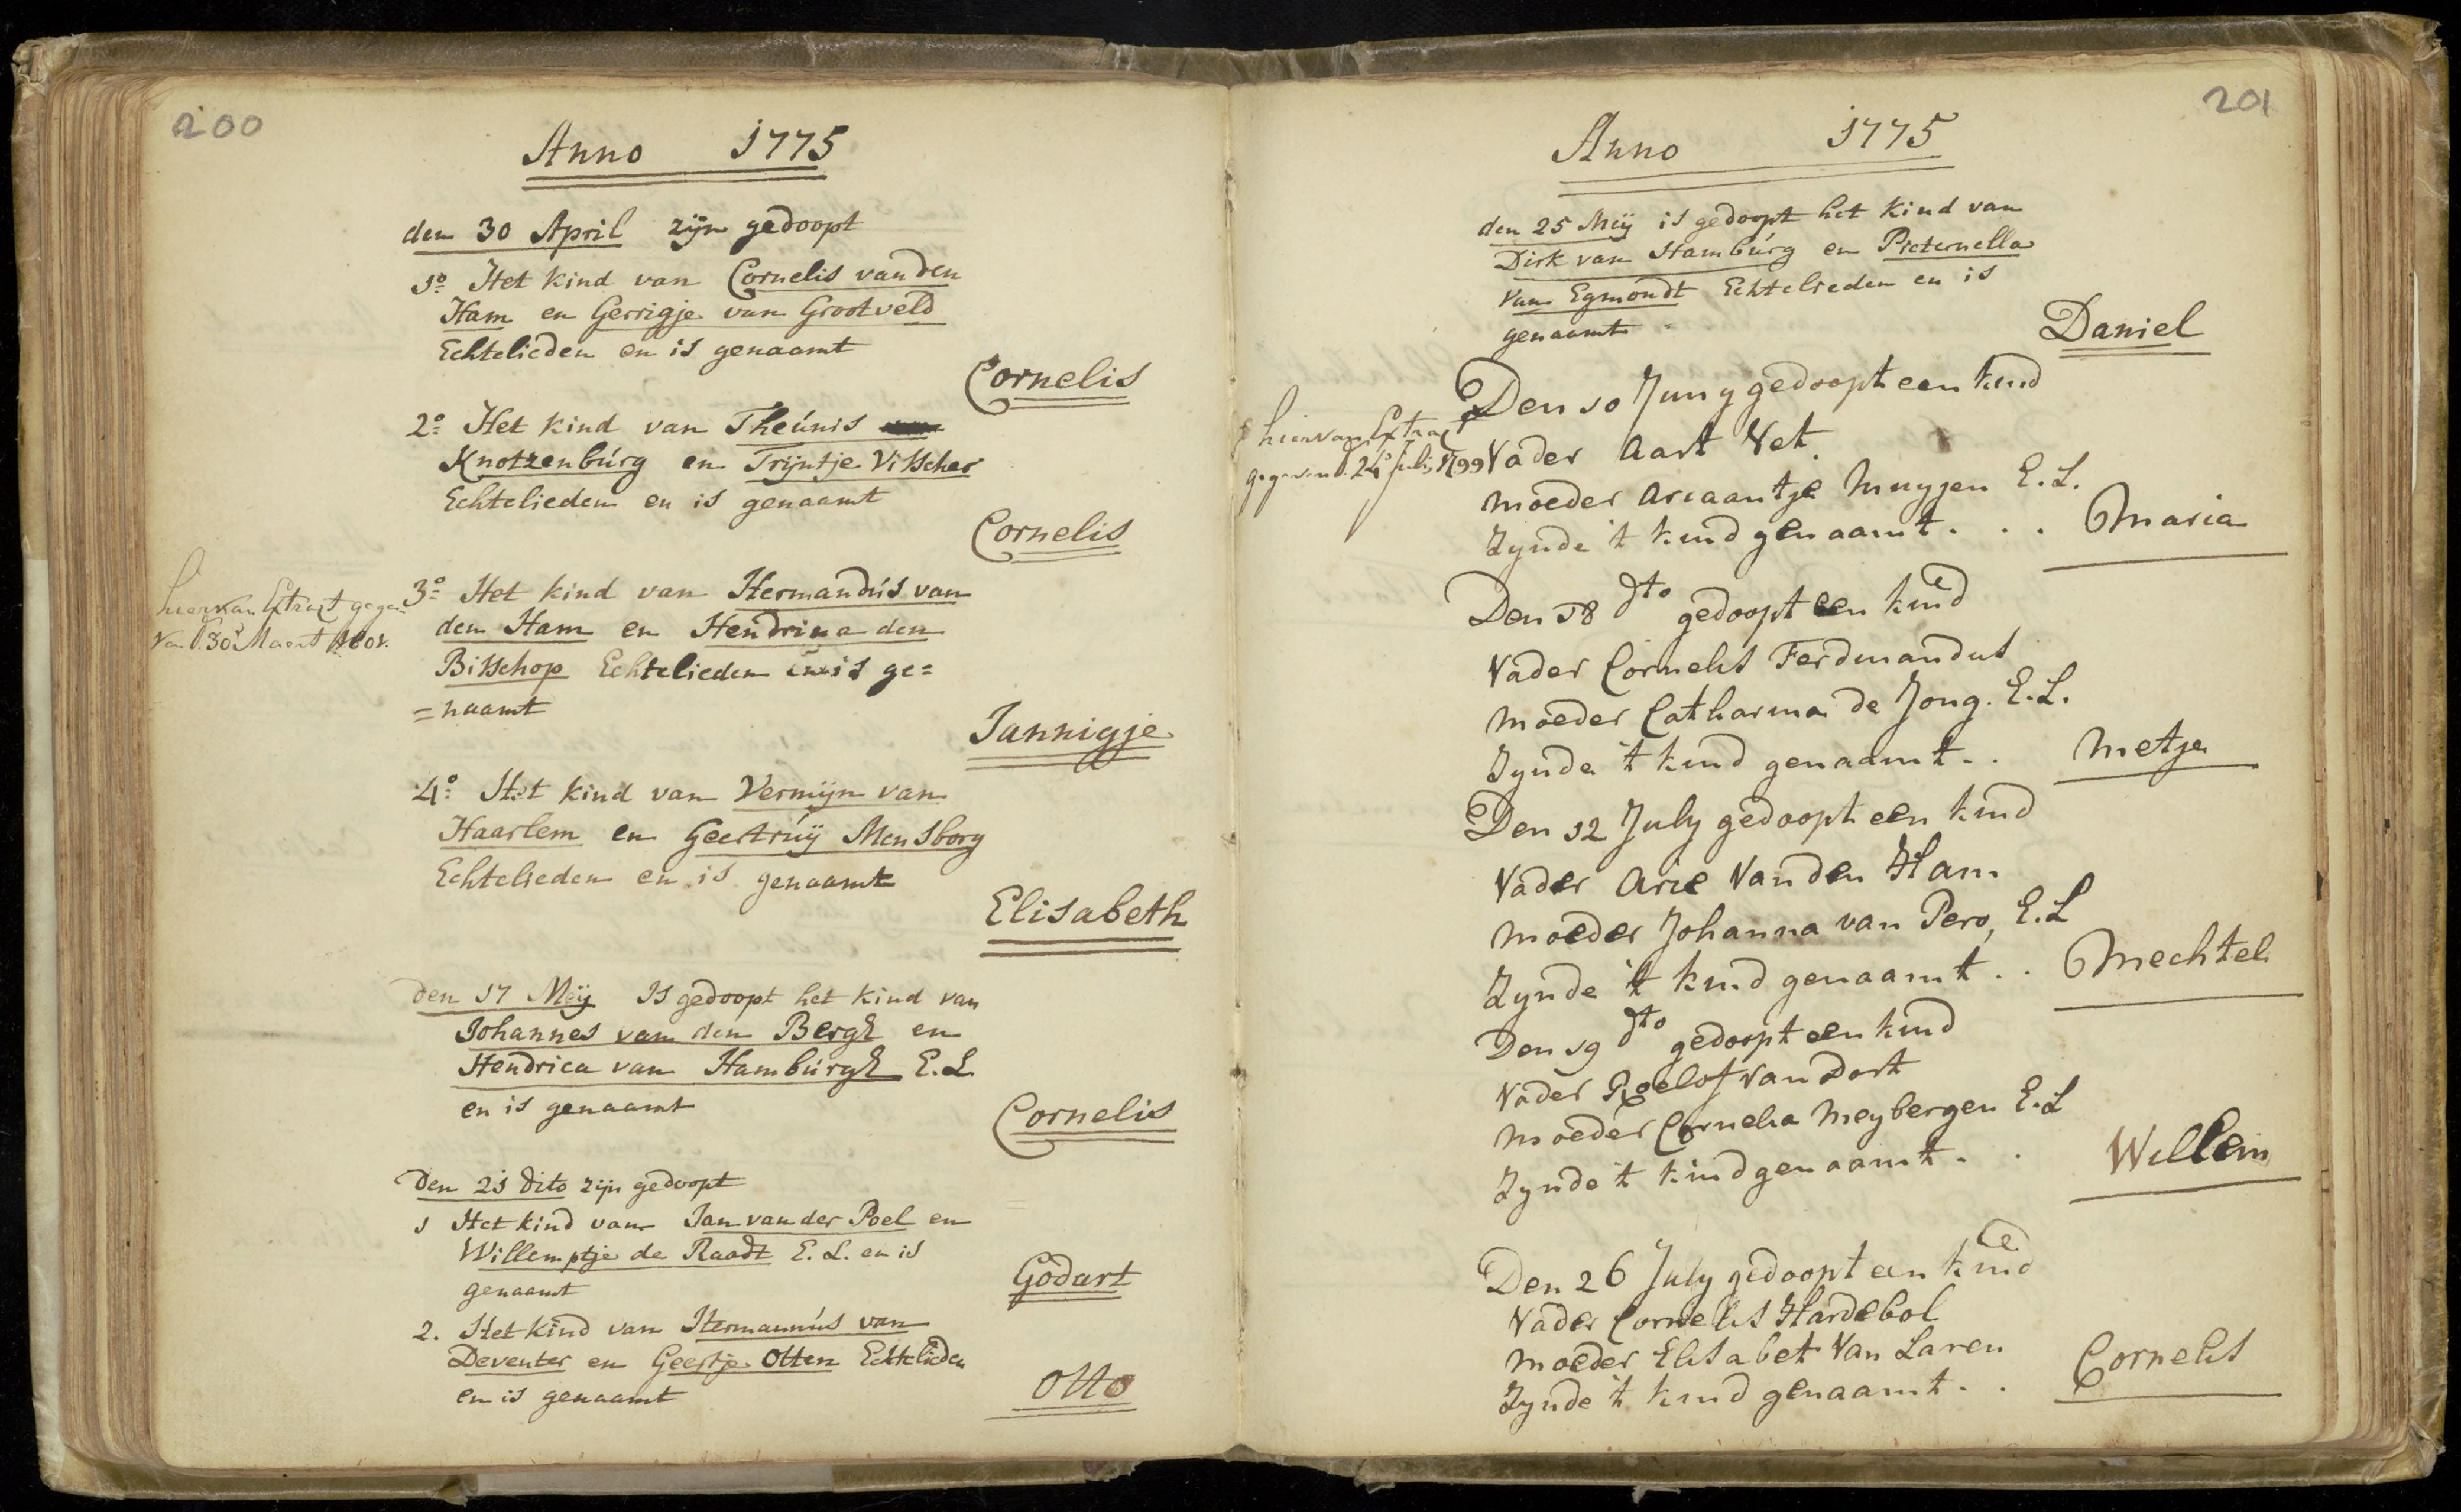 200
Anno 1775
den 30 April zijn gedoopt
1o. Het kind van Cornelis van den
Ham en Gerrigje van Grootveld
Echtelieden en is genaamt
Cornelis
2o. Het kind van Theúnis
Knotzenbúrg en Trijntje Visscher
Echtelieden en is genaamt
Cornelis
hiervan Extract gege
ven d. 30 Maart 1801.
3o. Het kind van Hermandús van
den Ham en Hendrina den
Bisschop Echtelieden en is ge=
=naamt
Jannigje
4o. Het kind van Vermijn van
Haarlem en Geertrúij Mensborg
Echtelieden en is genaamt
Elisabeth
den 17 Meij Is gedoopt het kind van
Johannes van den Bergh en
Hendrica van Hambúrgh E.L.
en is genaamt
Cornelis
Den 21 dito zijn gedoopt
1 Het kind van Jan van der Poel en
Willemptje de Raadt E.L. en is
genaamt
Godart
2. Het kind van Hermannús van
Deventer en Geertje Otten Echtelieden
en is genaamt
Otto
201
Anno 1775
den 25 Meij is gedoopt het kind van
Dirk van Hambúrg en Pieternella
van Egmondt Echtelieden en is
genaamt
Daniel
Den 10 Juny gedoopt een kind
hiervan Extract
gegeven d. 24 Julij 1799
Vader Aart Vet.
Moeder Ariaantje Muyjen E.L.
Zynde 't kind genaamt . . . Maria
Den 18 dto gedoopt een kind
Vader Cornelis Ferdinandus
Moeder Catharina de Jong. E.L.
Zynde 't kind genaamt . . Metje
Den 12 July gedoopt een kind
Vader Arie Van den Ham
Moeder Johanna van Pero, E.L
Zynde 't kind genaamt . . Mechtel
Den 19 dto gedoopt een kind
Vader Roelof van Dort
Moeder Cornelia Meybergen E.L
Zynde 't kind genaamt . . Willem
Den 26 July gedoopt een kind
Vader Cornelis Hardebol
Moeder Elisabet Van Laren
Zynde 't kind genaamt . . Cornelis